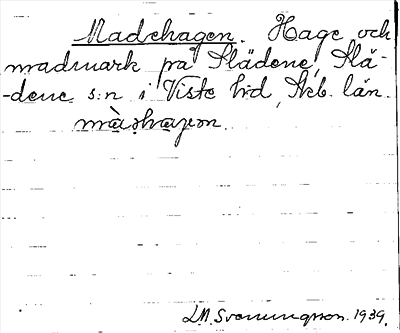 Madehagen. Hage och
madmark på Slädene, Slä-
-dene s:n i Viste hd, Skb. län.
màshagon.
L.M. Svenungsson. 1939.